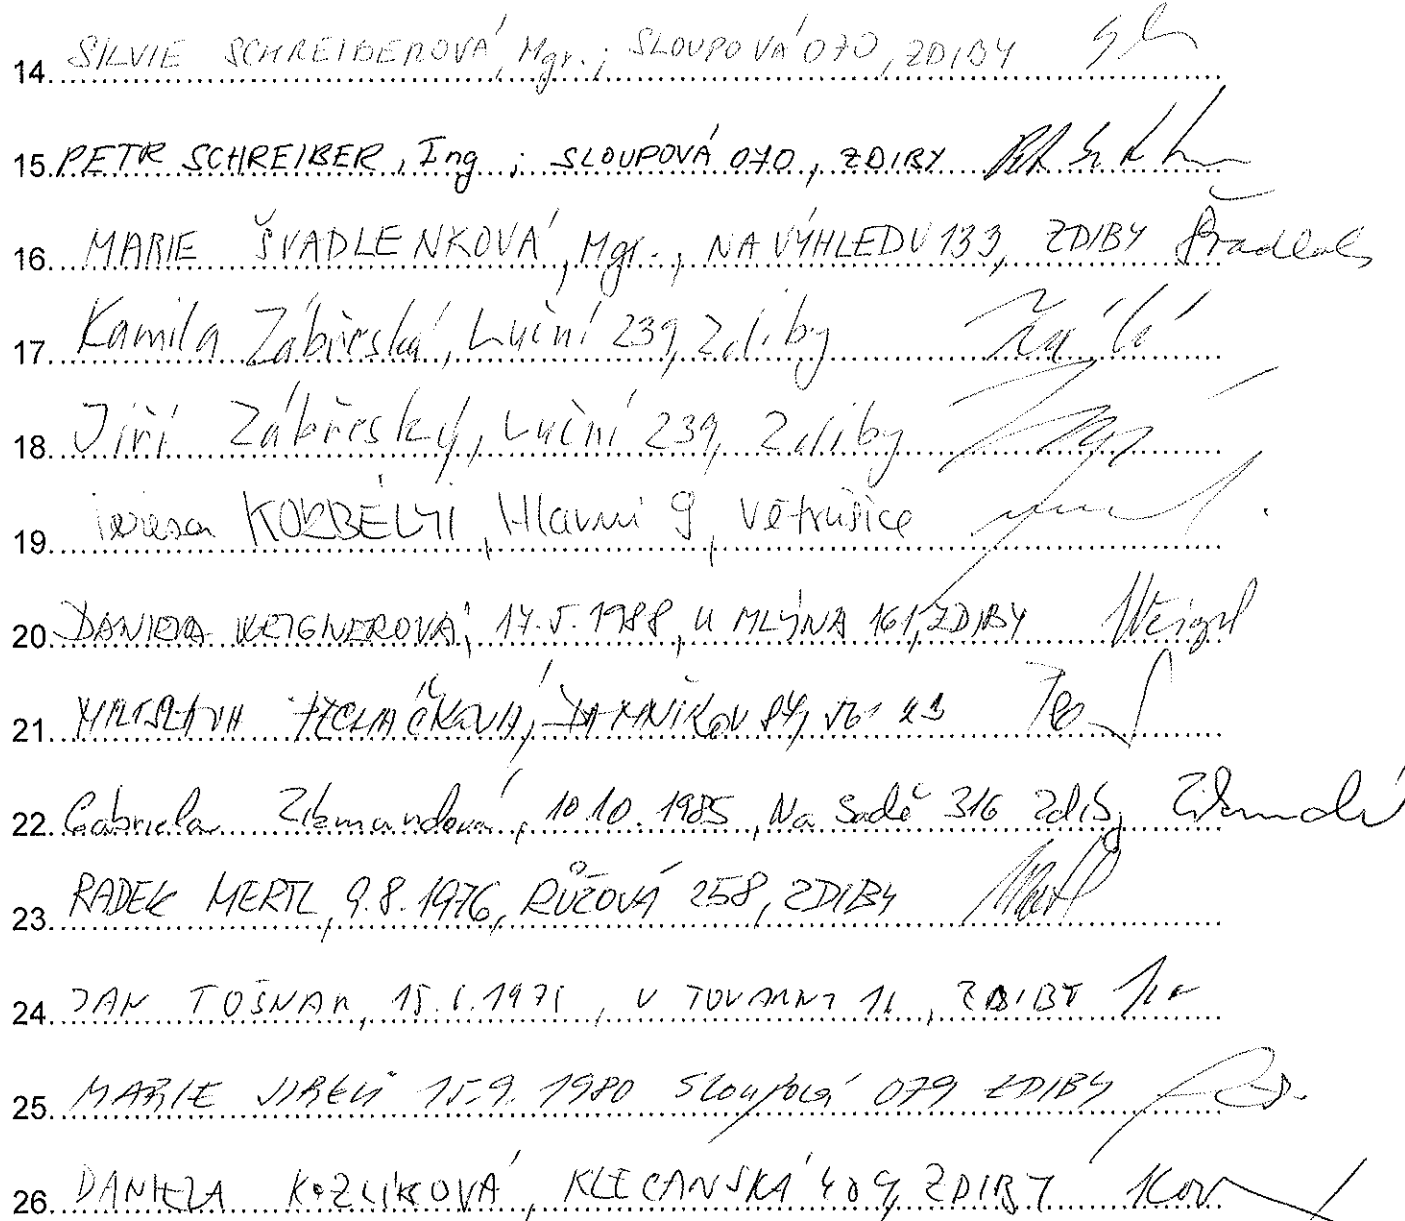 14. SILVIE SCHREIBEROVÁ, Mgr.; SLOUPOVÁ 070, ZDIBY
15. PETR SCHREIBER, Ing; SLOUPOVÁ 070, ZDIBY
16. MARIE ŠVADLENKOVÁ, Mgr., NA VÝHLEDU 133, ZDIBY
17. Kamila Zábřeská, Luční 239, Zdiby
18. Jiří Zábřeský, Luční 239, Zdiby
19. KORBÉLYI, Hlavní 9, Větrušice
20. DANIELA WEIGNEROVÁ, 14.5.1988, U MLÝNA 161, ZDIBY
21. DAMNÍKOV 84, 561 23
22. Gabriela Zikmundová, 10.10.1985, Na Sadě 316 Zdiby
23. RADEK MERTL, 9.8.1976, RŮŽOVÁ 258, ZDIBY
24. JAN TOŠNAR, ZDIBY
25. MARIE 15.9.1980 Sloupová 079 ZDIBY
26. DANIELA KOZLÍKOVÁ, KLECANSKÁ 409, ZDIBY